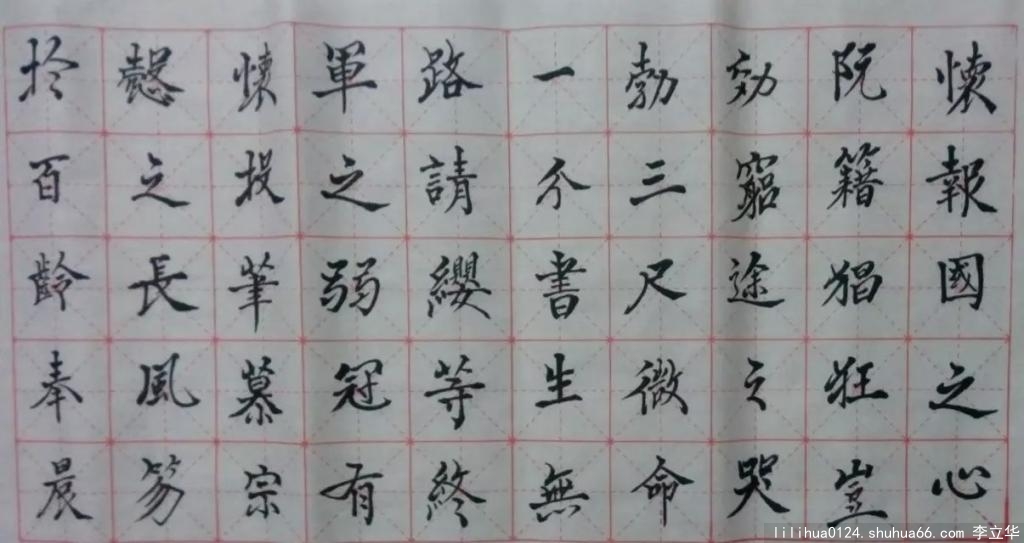 懷報國之心
阮籍猖狂豈
効窮途之哭
勃三尺微命
一介書生無
路請纓等終
軍之弱冠有
懷投筆慕宗
慤之長風笏
於百齡奉晨
lilihua0124.shuhua66.com 李立华